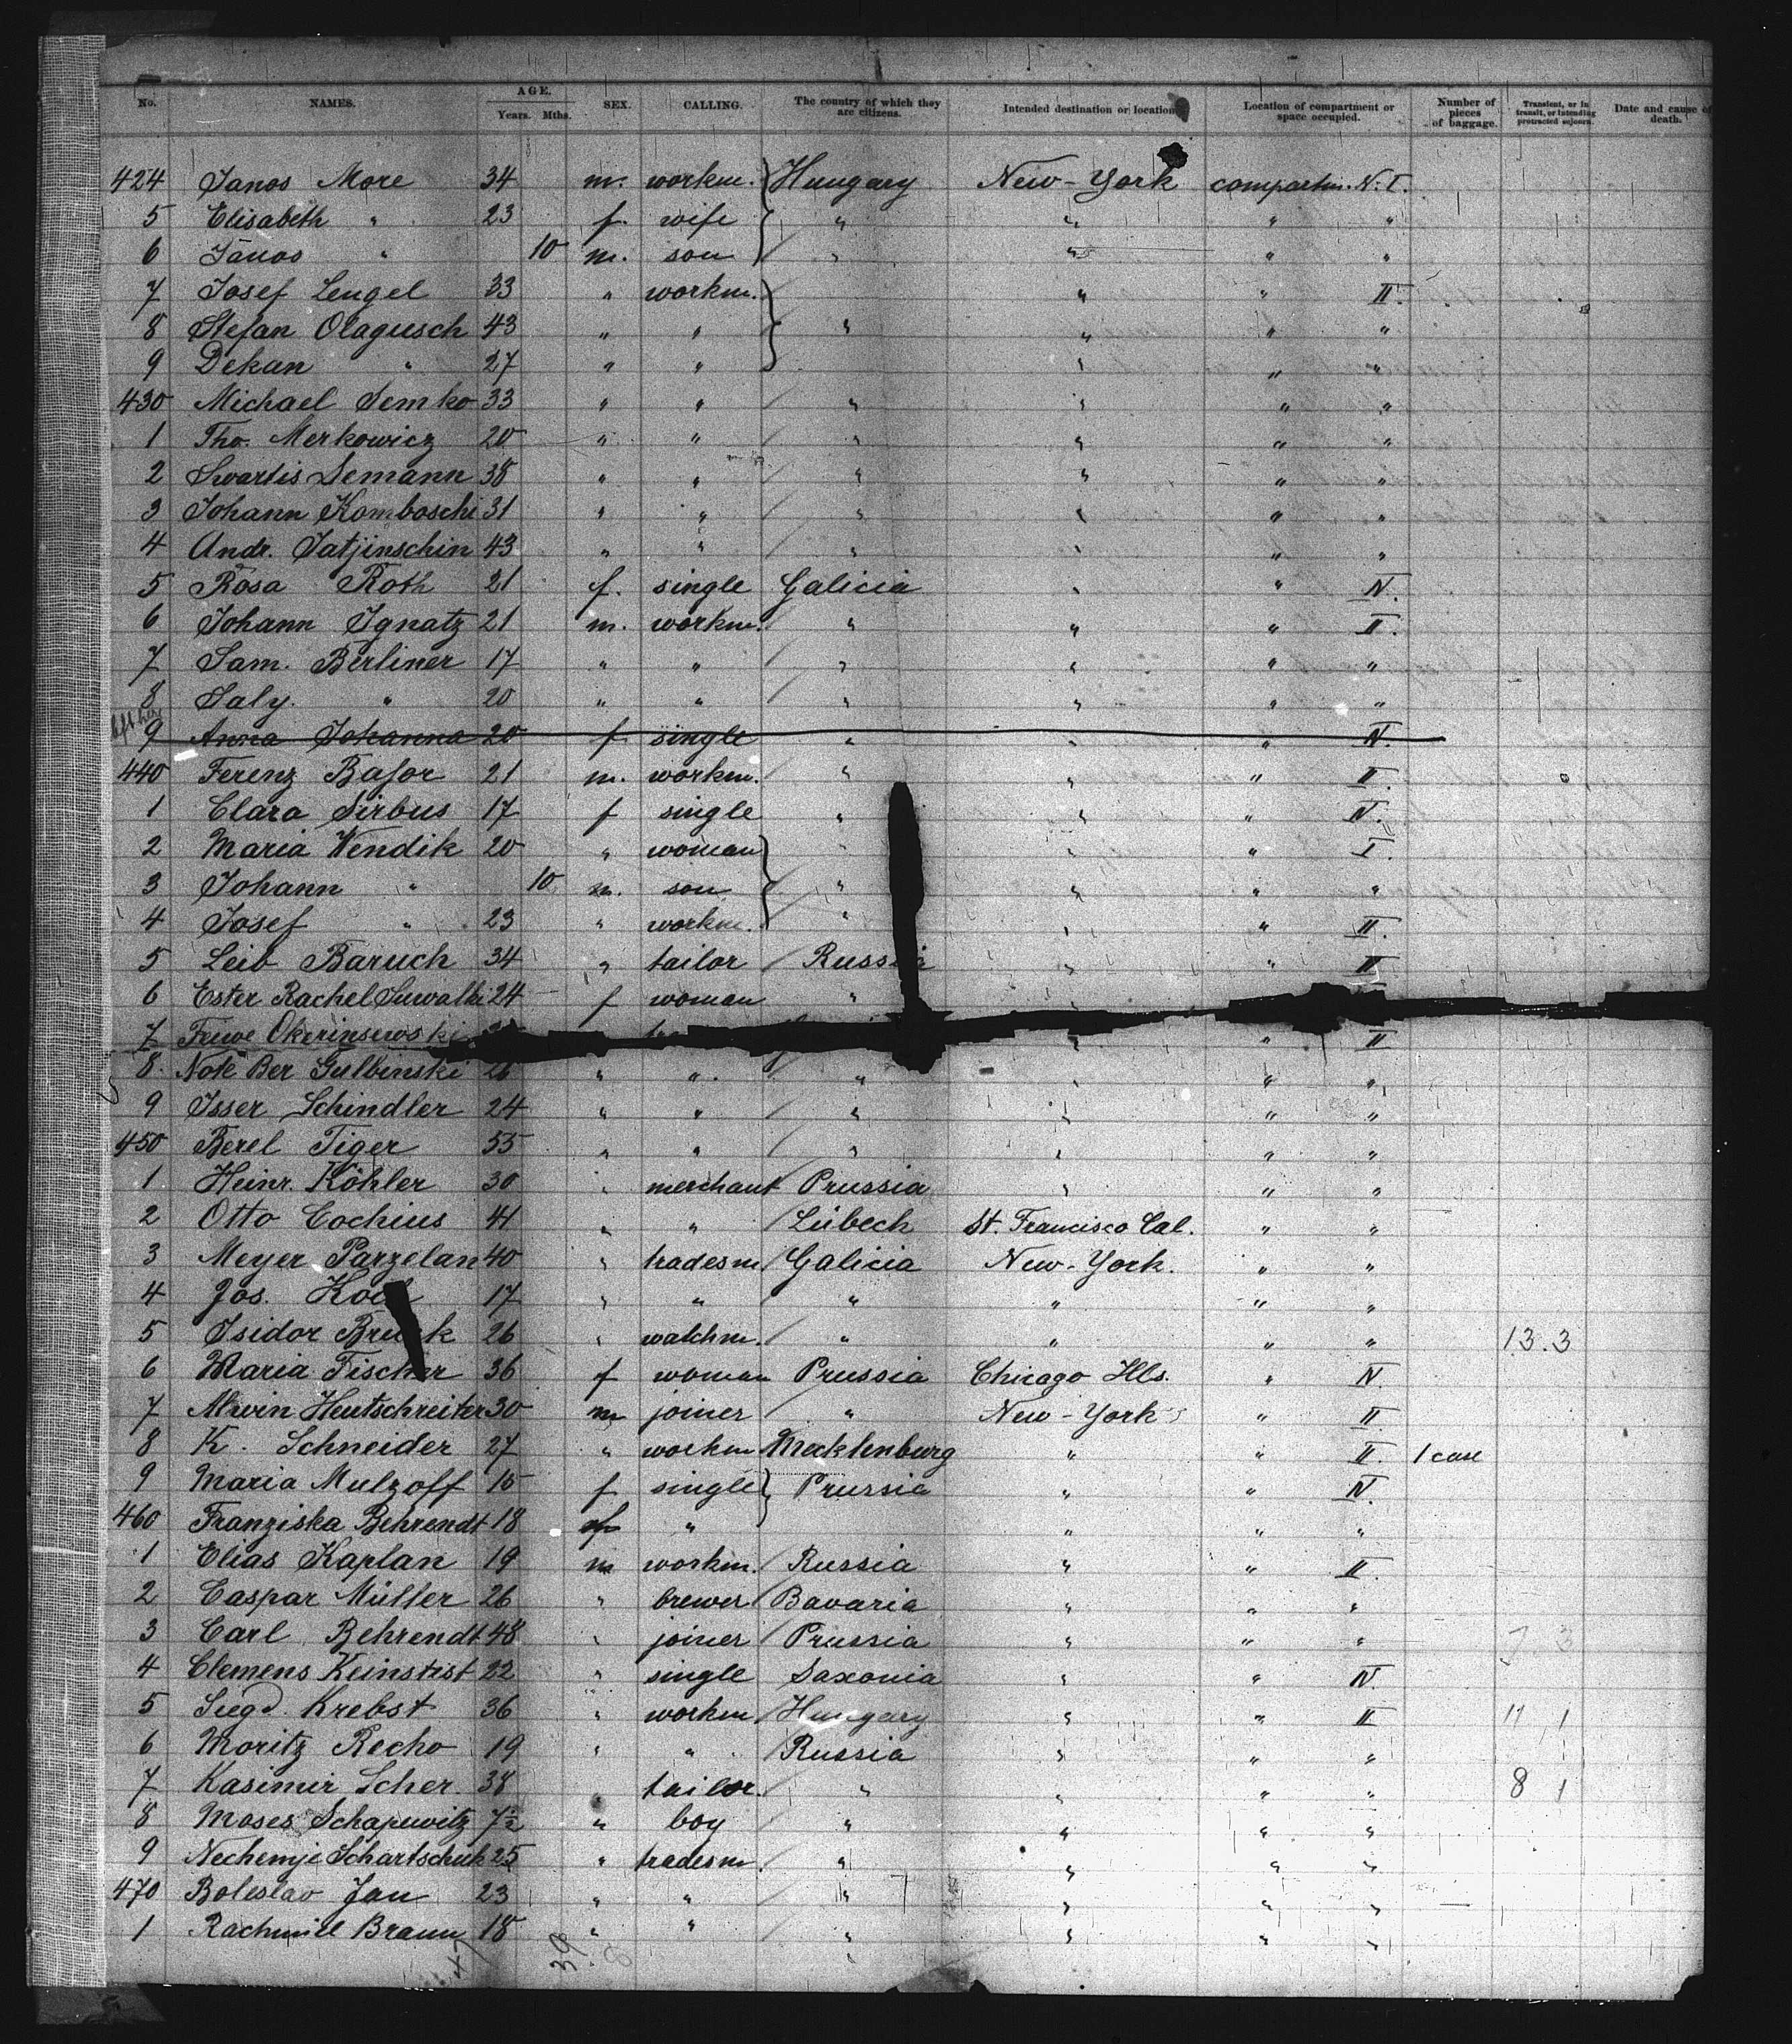 No. NAMES. AGE. Years. Mths. SEX. CALLING. The country of which they are citizens. Intended destination or location Location of compartment or space occupied. Number of pieces of baggage. Transient, or in transit, or intending protracted sojourn. Date and cause of death.
424 Janos More 34 m. workm. Hungary New-York compartm. N: I.
5 Elisabeth " 23 f. wife " " " "
6 Janos " 10 m. son " " " "
7 Josef Lengel 33 " workm. " " II.
8 Stefan Olagusch 43 " " " " " "
9 Dekan " 27 " " " " "
430 Michael Semko 33 " " " " " "
1 Tho. Merkowicz 20 " " " " " "
2 Swartis Demann 38 " " " " " "
3 Johann Komboschi 31 " " " " " "
4 Andr. Tatjinschin 43 " " " " " "
5 Rosa Roth 21 f. single Galicia " " N.
6 Johann Ignatz 21 m. workm. " " " II.
7 Sam. Berliner 17 " " " " " "
8 Saly. " 20 " " " " " "
9 Anna Johanna 20 f single " " " N.
440 Ferenz Basor 21 m. workm. " " " II.
1 Clara Sirbus 17 f single " " " N.
2 Maria Wendik 20 " woman " " " I.
3 Johann " 10 m. son " " " "
4 Josef " 23 " workm. " " " II.
5 Leib Baruch 34 " tailor Russia " " II
6 Ester Rachel Suwalki 24 f woman "
7 Feiwe Okerinsewski " " II
8. Note Ber Gulbinski 26 " " " " " "
9 Isser Schindler 24 " " " " " "
450 Berel Tiger 55 " " " " " "
1 Heinr. Köhler 30 " merchant Prussia " " "
2 Otto Cochius 41 " " Lübeck St. Francisco Cal. " "
3 Meyer Parzelan 40 " tradesm Galicia New-York. " "
4 Jos. 17 " " " " " "
5 Isidor Bruck 26 " watchm. " " " " 13.3
6 Maria Fischer 36 f woman Prussia Chicago Ills. " N.
7 Alwin Heutschreiter 30 m joiner " New-York " II
8 K. Schneider 27 " workm Mecklenburg " " II. 1 case
9 Maria Mulzoff 15 f single Prussia " " N.
460 Franziska Behrendt 18 f " " " "
1 Elias Kaplan 19 m workm. Russia " " II.
2 Caspar Müller 26 " brewer Bavaria " " "
3 Carl Behrendt 48 " joiner Prussia " " " 7 3
4 Clemens Keinstist 22 " single Saxonia " " N.
5 Siegd. Krebst 36 " workm Hungary " " II 11 1
6 Moritz Recho 19 " " Russia " " "
7 Kasimir Scher. 38 " tailor. " " " " 8 1
8 Moses Schapewitz 7½ " boy " " " "
9 Nechemje Schartschuk 25 " tradesm. " " " "
470 Boleslav Jan 23 " " " " " "
1 Rachmiel Braun 18 " " " " " "
47 39 8